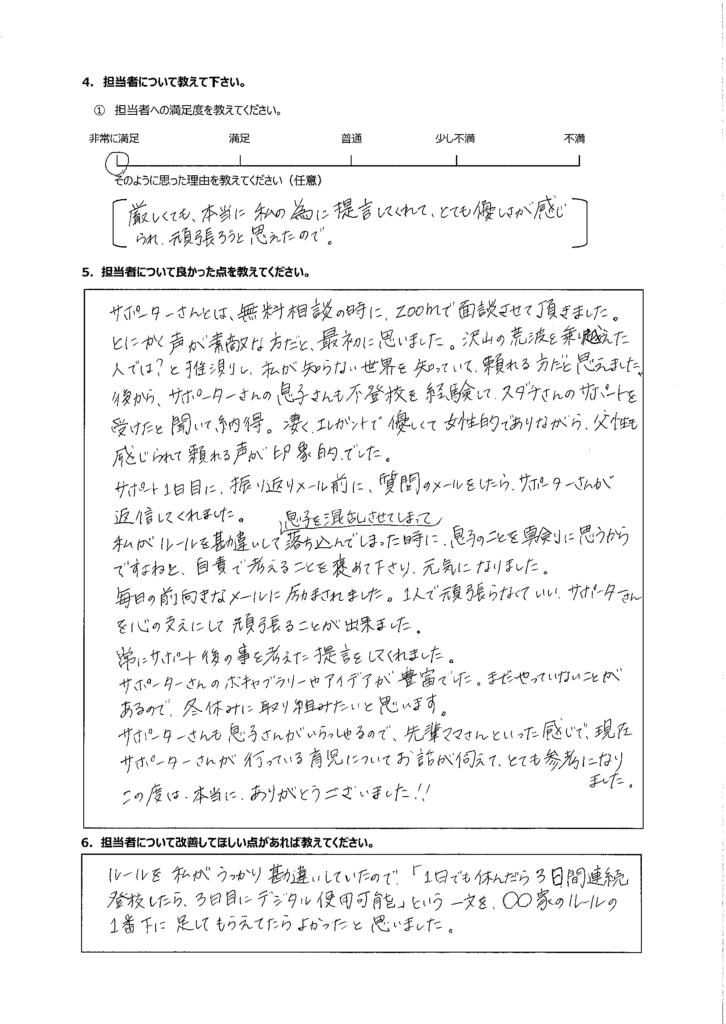 4．担当者について教えて下さい。
① 担当者への満足度を教えてください。
非常に満足 満足 普通 少し不満 不満
そのように思った理由を教えてください（任意）
厳しくても、本当に私の為に提言してくれて、とても優しさが感じ
られ、頑張ろうと思えたので。
5．担当者について良かった点を教えてください。
サポーターさんとは、無料相談の時に、zoomで面談させて頂きました。
とにかく声が素敵な方だと、最初に思いました。沢山の荒波を乗り越えた
人では？と推測し、私が知らない世界を知っていて、頼れる方だと思えました。
後から、サポーターさんの息子さんも不登校を経験して、スダチさんのサポートを
受けたと聞いて、納得。凄く、エレガントで優しくて女性的でありながら、父性も
感じられて頼れる声が印象的でした。
サポート1日目に、振り返りメール前に、質問のメールをしたら、サポーターさんが
返信してくれました。
息子を混乱させてしまって
私がルールを勘違いして落ち込んでしまった時に、息子のことを真剣に思うから
ですよねと、自責で考えることを褒めて下さり、元気になりました。
毎日の前向きなメールに励まされました。1人で頑張らなくていい、サポーターさん
を心の支えにして頑張ることが出来ました。
常にサポート後の事を考えた提言をしてくれました。
サポーターさんのボキャブラリーやアイデアが豊富でした。まだやっていないことが
あるので、冬休みに取り組みたいと思います。
サポーターさんも息子さんがいらっしゃるので、先輩ママさんといった感じで、現在
サポーターさんが行っている育児についてお話が伺えて、とても参考になり
ました。
この度は、本当に、ありがとうございました!!
6．担当者について改善してほしい点があれば教えてください。
ルールを私がうっかり勘違いしていたので、「1日でも休んだら3日間連続
登校したら、3日目にデジタル使用可能」という一文を、〇〇家のルールの
1番下に足してもらえてたらよかったと思いました。